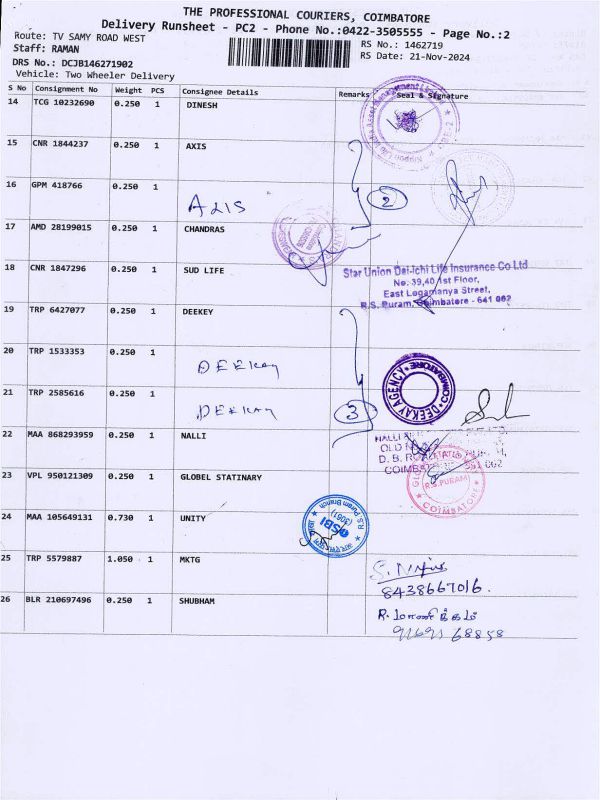 THE PROFESSIONAL COURIERS, COIMBATORE
Delivery Runsheet - PC2 - Phone No.:0422-3505555 - Page No.:2
Route: TV SAMY ROAD WEST
RS No.: 1462719
Staff: RAMAN
RS Date: 21-Nov-2024
DRS No.: DCJB146271902
Vehicle: Two Wheeler Delivery
S No Consignment No Weight PCS Consignee Details Remarks Seal & Signature
14 TCG 10232690 0.250 1 DINESH
15 CNR 1844237 0.250 1 AXIS
16 GPM 418766 0.250 1 AXIS
2
17 AMD 28199015 0.250 1 CHANDRAS
18 CNR 1847296 0.250 1 SUD LIFE
Star Union Dai-ichi Life Insurance Co Ltd
No. 39,40 1st Floor,
East Logamanya Street,
R.S. Puram, Coimbatore - 641 002
19 TRP 6427077 0.250 1 DEEKEY
20 TRP 1533353 0.250 1 DEEKay
21 TRP 2585616 0.250 1 DEEKay
3
DEEKAY AGENCY COIMBATORE
22 MAA 868293959 0.250 1 NALLI
NALLI
OLD NO
D. B. R
COIMBATORE
23 VPL 950121309 0.250 1 GLOBEL STATINARY
R.S.PURAM
COIMBATORE
24 MAA 105649131 0.730 1 UNITY
SBI
R.S.Puram Branch
25 TRP 5579887 1.050 1 MKTG
8438667016.
26 BLR 210697496 0.250 1 SHUBHAM
R. மாணிக்கம்